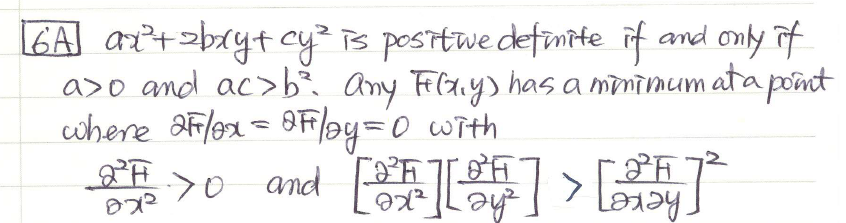 6A ax²+2bxy+cy² is positive definite if and only if
a>0 and ac>b². Any F(x,y) has a minimum at a point
where ∂F/∂x = ∂F/∂y=0 with
∂²F/∂x² > 0 and [∂²F/∂x²][∂²F/∂y²] > [∂²F/∂x∂y]²